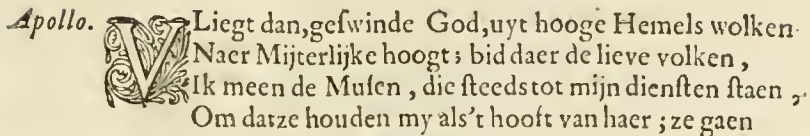 Apollo. VLiegt dan,geſwinde God,uyt hooge Hemels wolken
Naer Mijterlijke hoogt; bid daer de lieve volken,
Ik meen de Muſen, die ſteeds tot mijn dienſten ſtaen,
Om datze houden my als't hooft van haer; ze gaen